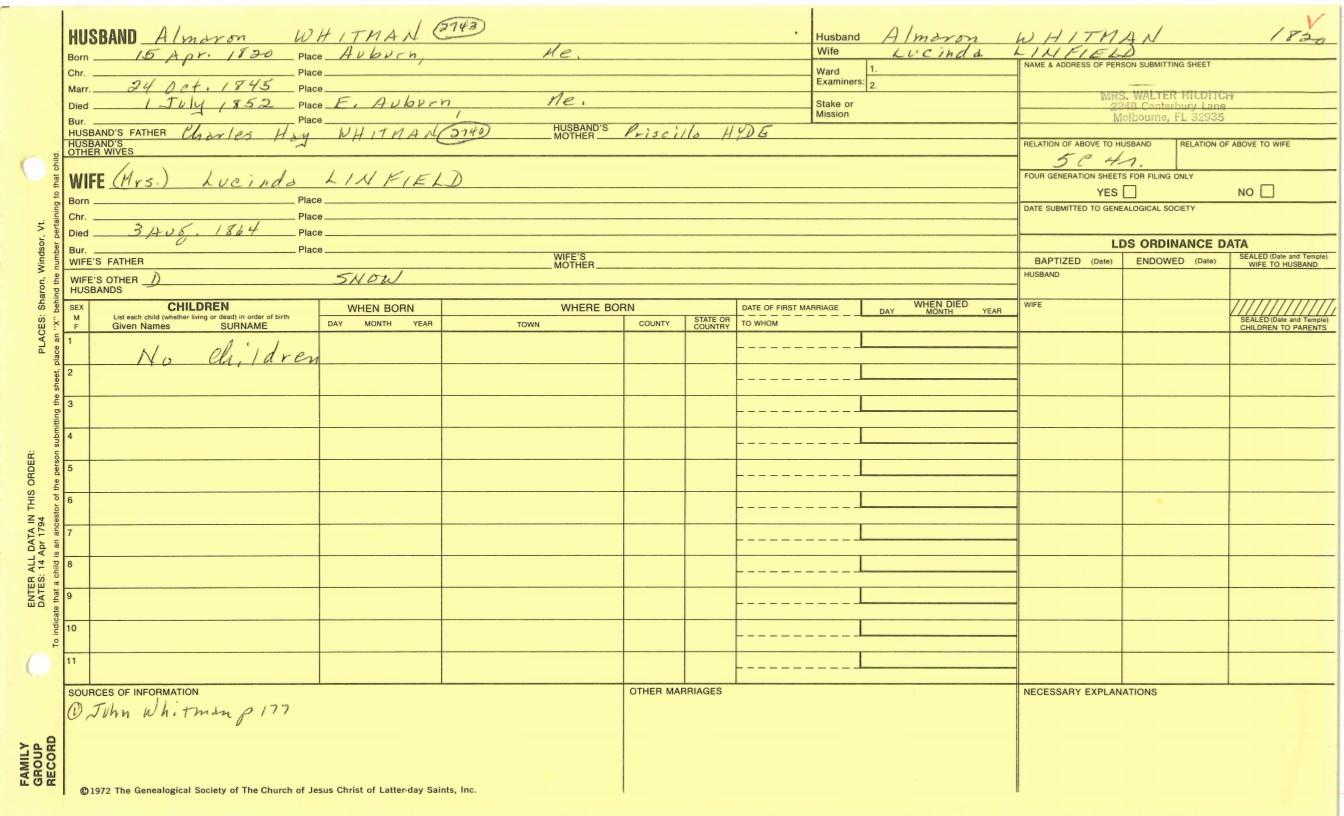 HUSBAND Almaron WHITMAN 2743
Born 15 Apr. 1820 Place Auburn, Me.
Chr. Place
Marr. 24 Oct. 1845 Place
Died 1 July 1852 Place E. Auburn, Me.
Bur. Place
HUSBAND'S FATHER Charles Hoy WHITMAN 2740 HUSBAND'S MOTHER Priscilla HYDE
HUSBAND'S OTHER WIVES
WIFE (Mrs.) Lucinda LINFIELD
Born Place
Chr. Place
Died 3 Aug. 1864 Place
Bur. Place
WIFE'S FATHER WIFE'S MOTHER
WIFE'S OTHER HUSBANDS D SNOW
Husband Almaron WHITMAN 1820
V
Wife Lucinda LINFIELD
Ward Examiners: 1.
2.
Stake or Mission
NAME & ADDRESS OF PERSON SUBMITTING SHEET
MRS. WALTER HILDITCH
2248 Canterbury Lane
Melbourne, FL 32935
RELATION OF ABOVE TO HUSBAND RELATION OF ABOVE TO WIFE
5C 4r.
FOUR GENERATION SHEETS FOR FILING ONLY
YES NO
DATE SUBMITTED TO GENEALOGICAL SOCIETY
LDS ORDINANCE DATA
BAPTIZED (Date) ENDOWED (Date) SEALED (Date and Temple) WIFE TO HUSBAND
HUSBAND
WIFE
SEALED (Date and Temple) CHILDREN TO PARENTS
SEX M F
CHILDREN
List each child (whether living or dead) in order of birth
Given Names SURNAME
WHEN BORN
DAY MONTH YEAR
WHERE BORN
TOWN COUNTY STATE OR COUNTRY
DATE OF FIRST MARRIAGE
TO WHOM
WHEN DIED
DAY MONTH YEAR
1 No Children
2
3
4
5
6
7
8
9
10
11
SOURCES OF INFORMATION
① John Whitman p 177
OTHER MARRIAGES
NECESSARY EXPLANATIONS
©1972 The Genealogical Society of The Church of Jesus Christ of Latter-day Saints, Inc.
FAMILY GROUP RECORD
ENTER ALL DATA IN THIS ORDER:
DATES: 14 Apr 1794
PLACES: Sharon, Windsor, Vt.
To indicate that a child is an ancestor of the person submitting the sheet, place an "X" behind the number pertaining to that child.